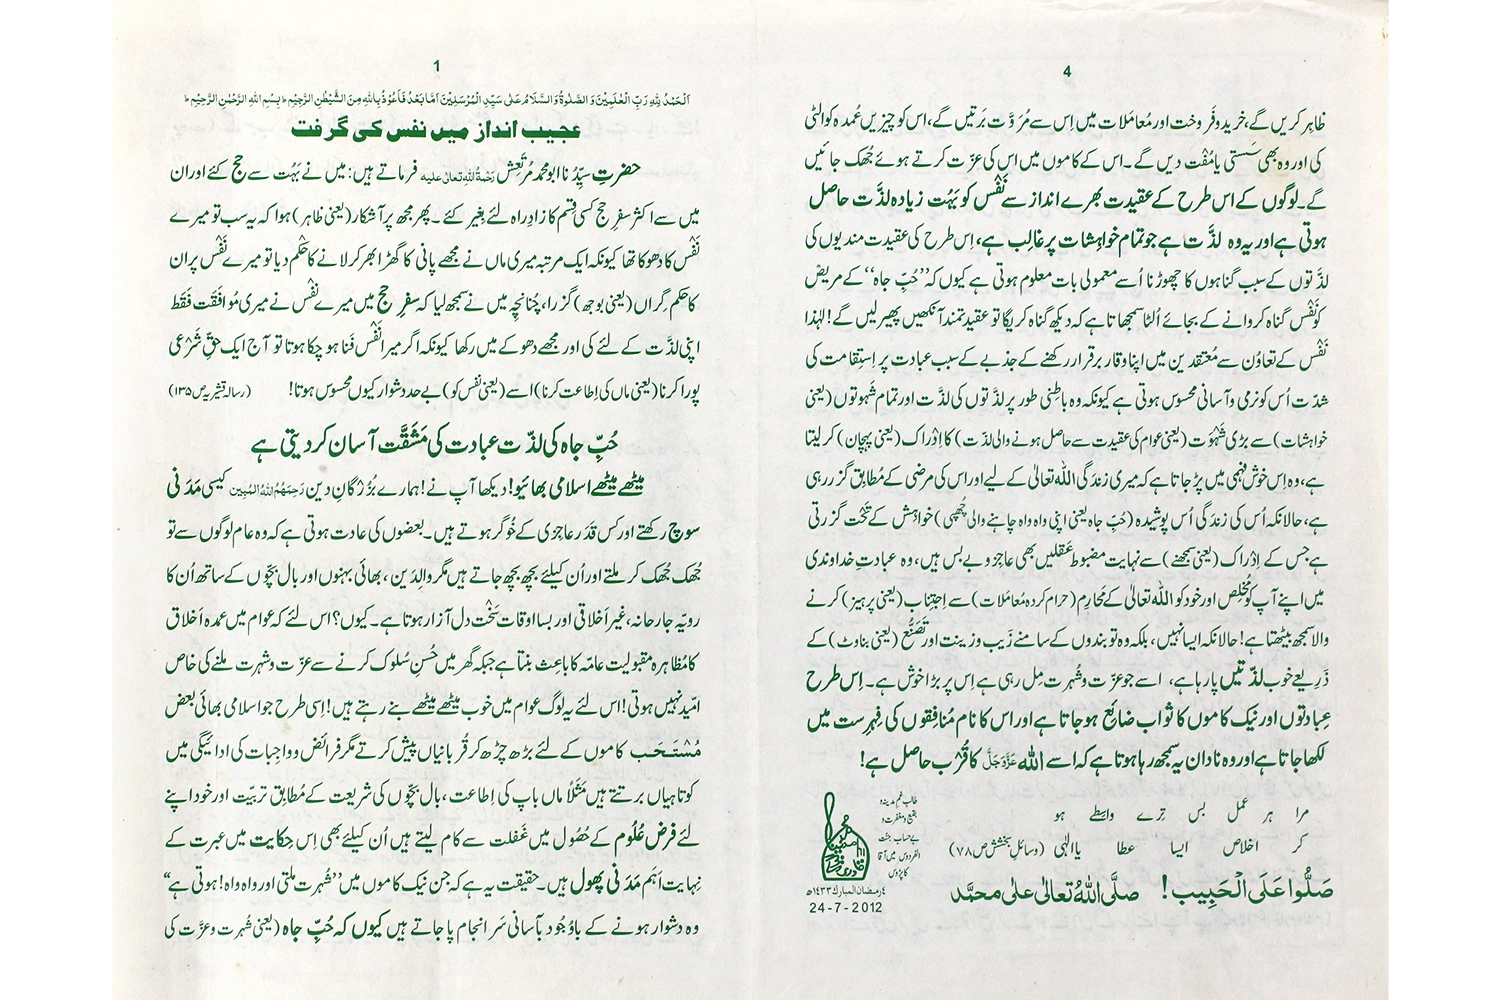 1
اَلْحَمْدُ لِلّٰہِ رَبِّ الْعٰلَمِیْنَ وَ الصَّلٰوۃُ وَ السَّلَامُ عَلٰی سَیِّدِ الْمُرْسَلِیْنَ اَمَّا بَعْدُ فَاَعُوْذُ بِاللّٰہِ مِنَ الشَّیْطٰنِ الرَّجِیْمِ ط بِسْمِ اللّٰہِ الرَّحْمٰنِ الرَّحِیْمِ ط
عجیب انداز میں نفس کی گرفت
حضرتِ سیِّدُنا ابو محمد مُرتَعِش رَحْمَۃُ اللّٰہِ تعالٰی علیہ فرماتے ہیں: میں نے بَہُت سے حج کئے اور ان
میں سے اکثر سفرِ حج کسی قِسم کا زادِ راہ لئے بِغیر کئے۔ پھر مجھ پر آشکار (یعنی ظاہر) ہوا کہ یہ سب تو میرے
نَفْس کا دھوکا تھا کیونکہ ایک مرتبہ میری ماں نے مجھے پانی کا گھڑا بھر کر لانے کا حکم دیا تو میرے نَفْس پر ان
کا حکم گِراں (یعنی بوجھ) گزرا، چُنانچِہ میں نے سمجھ لیا کہ سفرِ حج میں میرے نَفْس نے میری مُوافَقَت فَقَط
اپنی لذَّت کے لئے کی اور مجھے دھوکے میں رکھا کیونکہ اگر میرا نَفْس فَنا ہو چکا ہوتا تو آج ایک حقِّ شَرْعی
پورا کرنا (یعنی ماں کی اِطاعت کرنا) اسے (یعنی نفس کو) بے حد دشوار کیوں محسوس ہوتا! (رسالہ قشیریہ ص ۱۳۵)
حُبِّ جاہ کی لذّت عبادت کی مَشَقَّت آسان کر دیتی ہے
میٹھے میٹھے اسلامی بھائیو! دیکھا آپ نے! ہمارے بُزُرگانِ دین رَحِمَهُمُ اللّٰهُ الْمُبِين کیسی مَدَنی
سوچ رکھتے اور کس قَدَر عاجزی کے خُوگر ہوتے ہیں۔ بعضوں کی عادت ہوتی ہے کہ وہ عام لوگوں سے تو
جُھک جُھک کر ملتے اور اُن کیلئے بچھ بچھ جاتے ہیں مگر والِدَین، بھائی بہنوں اور بال بچّوں کے ساتھ اُن کا
رویّہ جارحانہ، غیر اَخلاقی اور بسا اوقات سَخْت دل آزار ہوتا ہے۔ کیوں؟ اس لئے کہ عوام میں عمدہ اَخلاق
کا مُظاہَرہ مقبولیتِ عامّہ کا باعِث بنتا ہے جبکہ گھر میں حُسنِ سُلوک کرنے سے عزّت و شہرت ملنے کی خاص
امّید نہیں ہوتی! اس لئے یہ لوگ عوام میں خوب میٹھے میٹھے بنے رہتے ہیں! اِسی طرح جو اسلامی بھائی بعض
مُسْتَحَب کاموں کے لئے بڑھ چڑھ کر قُربانیاں پیش کرتے مگر فرائض و واجِبات کی ادائیگی میں
کوتاہیاں برتتے ہیں مَثَلاً ماں باپ کی اِطاعت، بال بچّوں کی شریعت کے مُطابِق تربیت اور خود اپنے
لئے فَرض عُلُوم کے حُصُول میں غَفلت سے کام لیتے ہیں اُن کیلئے بھی اِس حِکایت میں عبرت کے
نہایت اَہَم مَدَنی پھول ہیں۔ حقیقت یہ ہے کہ جن نیک کاموں میں ’’شُہرت ملتی اور واہ واہ! ہوتی ہے‘‘
وہ دشوار ہونے کے باوُجُود بآسانی سَر انجام پا جاتے ہیں کیوں کہ حُبِّ جاہ (یعنی شُہرت و عزّت کی
4
ظاہِر کریں گے، خرید و فَروخت اور مُعامَلات میں اِس سے مُرُوَّت بَرتیں گے، اس کو چیزیں عُمدہ کوالٹی
کی اور وہ بھی سَستی یا مُفْت دیں گے۔ اس کے کاموں میں اس کی عزّت کرتے ہوئے جُھک جائیں
گے۔ لوگوں کے اس طرح کے عقیدت بھرے انداز سے نَفْس کو بَہُت زیادہ لذَّت حاصل
ہوتی ہے اور یہ وہ لذَّت ہے جو تمام خواہِشات پر غالِب ہے، اِس طرح کی عقیدت مندیوں کی
لذَّتوں کے سبب گناہوں کا چھوڑنا اُسے معمولی بات معلوم ہوتی ہے کیوں کہ ’’حُبِّ جاہ‘‘ کے مریض
کو نَفْس گناہ کروانے کے بجائے اُلٹا سمجھاتا ہے کہ دیکھ گناہ کریگا تو عقیدتمند آنکھیں پھیر لیں گے! لہٰذا
نَفْس کے تعاوُن سے مُعتقدین میں اپنا وقار برقرار رکھنے کے جذبے کے سبب عبادت پر اِستِقامت کی
شدّت اُس کو نرمی و آسانی محسوس ہوتی ہے کیونکہ وہ باطِنی طور پر لذَّتوں کی لذَّت اور تمام شَہوتوں (یعنی
خواہِشات) سے بڑی شَہْوَت (یعنی عوام کی عقیدت سے حاصل ہونے والی لذّت) کا اِدْراک (یعنی پہچان) کر لیتا
ہے، وہ اِس خوش فہمی میں پڑ جاتا ہے کہ میری زندَگی اللّٰہ تعالیٰ کے لیے اور اس کی مرضی کے مُطابِق گزر رہی
ہے، حالانکہ اُس کی زندَگی اُس پوشیدہ (حُبِّ جاہ یعنی اپنی واہ واہ چاہنے والی چُھپی) خواہِش کے تَحْت گزرتی
ہے جس کے اِدْراک (یعنی سمجھنے) سے نہایت مضبوط عَقلیں بھی عاجِز و بے بس ہیں، وہ عبادتِ خداوندی
میں اپنے آپ کو مُخْلِص اور خود کو اللّٰہ تعالیٰ کے مَحارِم (حرام کردہ مُعامَلات) سے اِجتِناب (یعنی پرہیز) کرنے
والا سمجھ بیٹھتا ہے! حالانکہ ایسا نہیں، بلکہ وہ تو بندوں کے سامنے زَیب و زینت اور تَصَنُّع (یعنی بناوٹ) کے
ذَرِیعے خوب لذّتیں پا رہا ہے، اسے جو عزّت و شُہرت مِل رہی ہے اِس پر بڑا خوش ہے۔ اِس طرح
عِبادتوں اور نیک کاموں کا ثواب ضائِع ہو جاتا ہے اور اس کا نام مُنافِقوں کی فِہرِست میں
لکھا جاتا ہے اور وہ نادان یہ سمجھ رہا ہوتا ہے کہ اسے اللّٰہ عَزَّوَجَلَّ کا قُرْب حاصل ہے!
مرا ہر عمل بس تِرے واسِطے ہو
کر اخلاص ایسا عطا یا الٰہی (وسائلِ بخشش ص ۷۸)
صَلُّوا عَلَی الْحَبِیب! صلَّی اللّٰہُ تعالٰی علٰی محمَّد
طالبِ غمِ مدینہ و
بقیع و مغفرت و
بے حساب جنّت
الفردوس میں آقا
کا پڑوس
۴ رمضان المبارک ۱۴۳۳ھ
24-7-2012